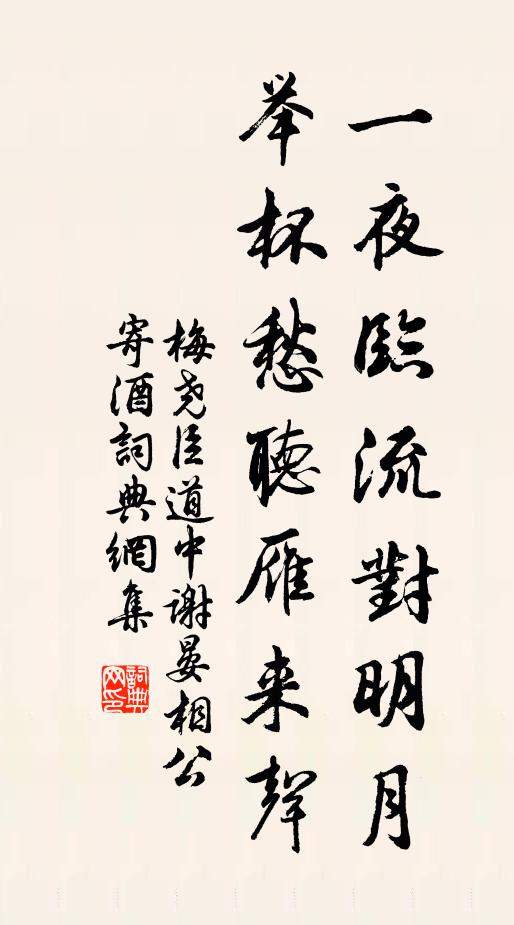 一夜臨流對明月
举杯愁聽雁来聲
梅尧臣道中谢晏相公
寄酒詞典網集
詞典
网印